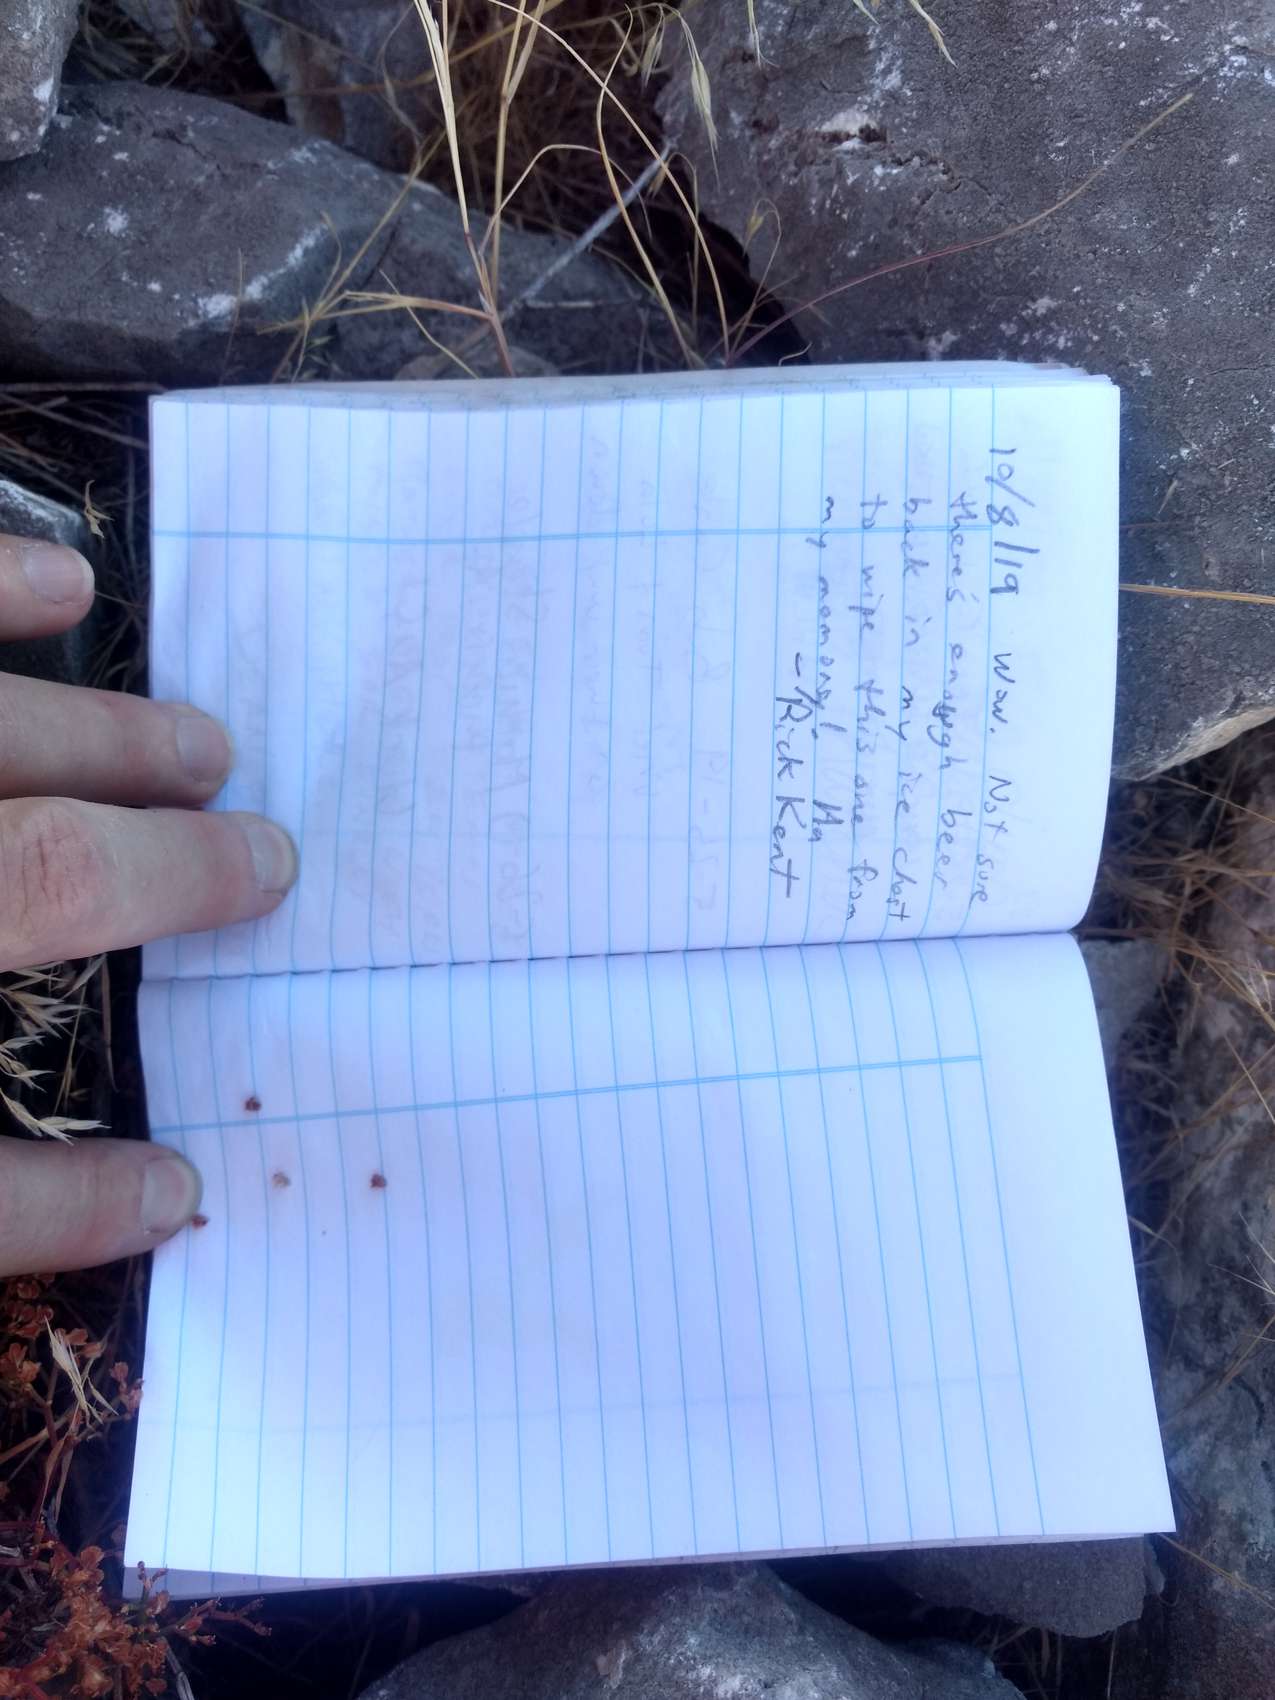 10/8/19 Wow. Not sure
there's enough beer
back in my ice chest
to wipe this one from
my memory! Ha
- Rick Kent